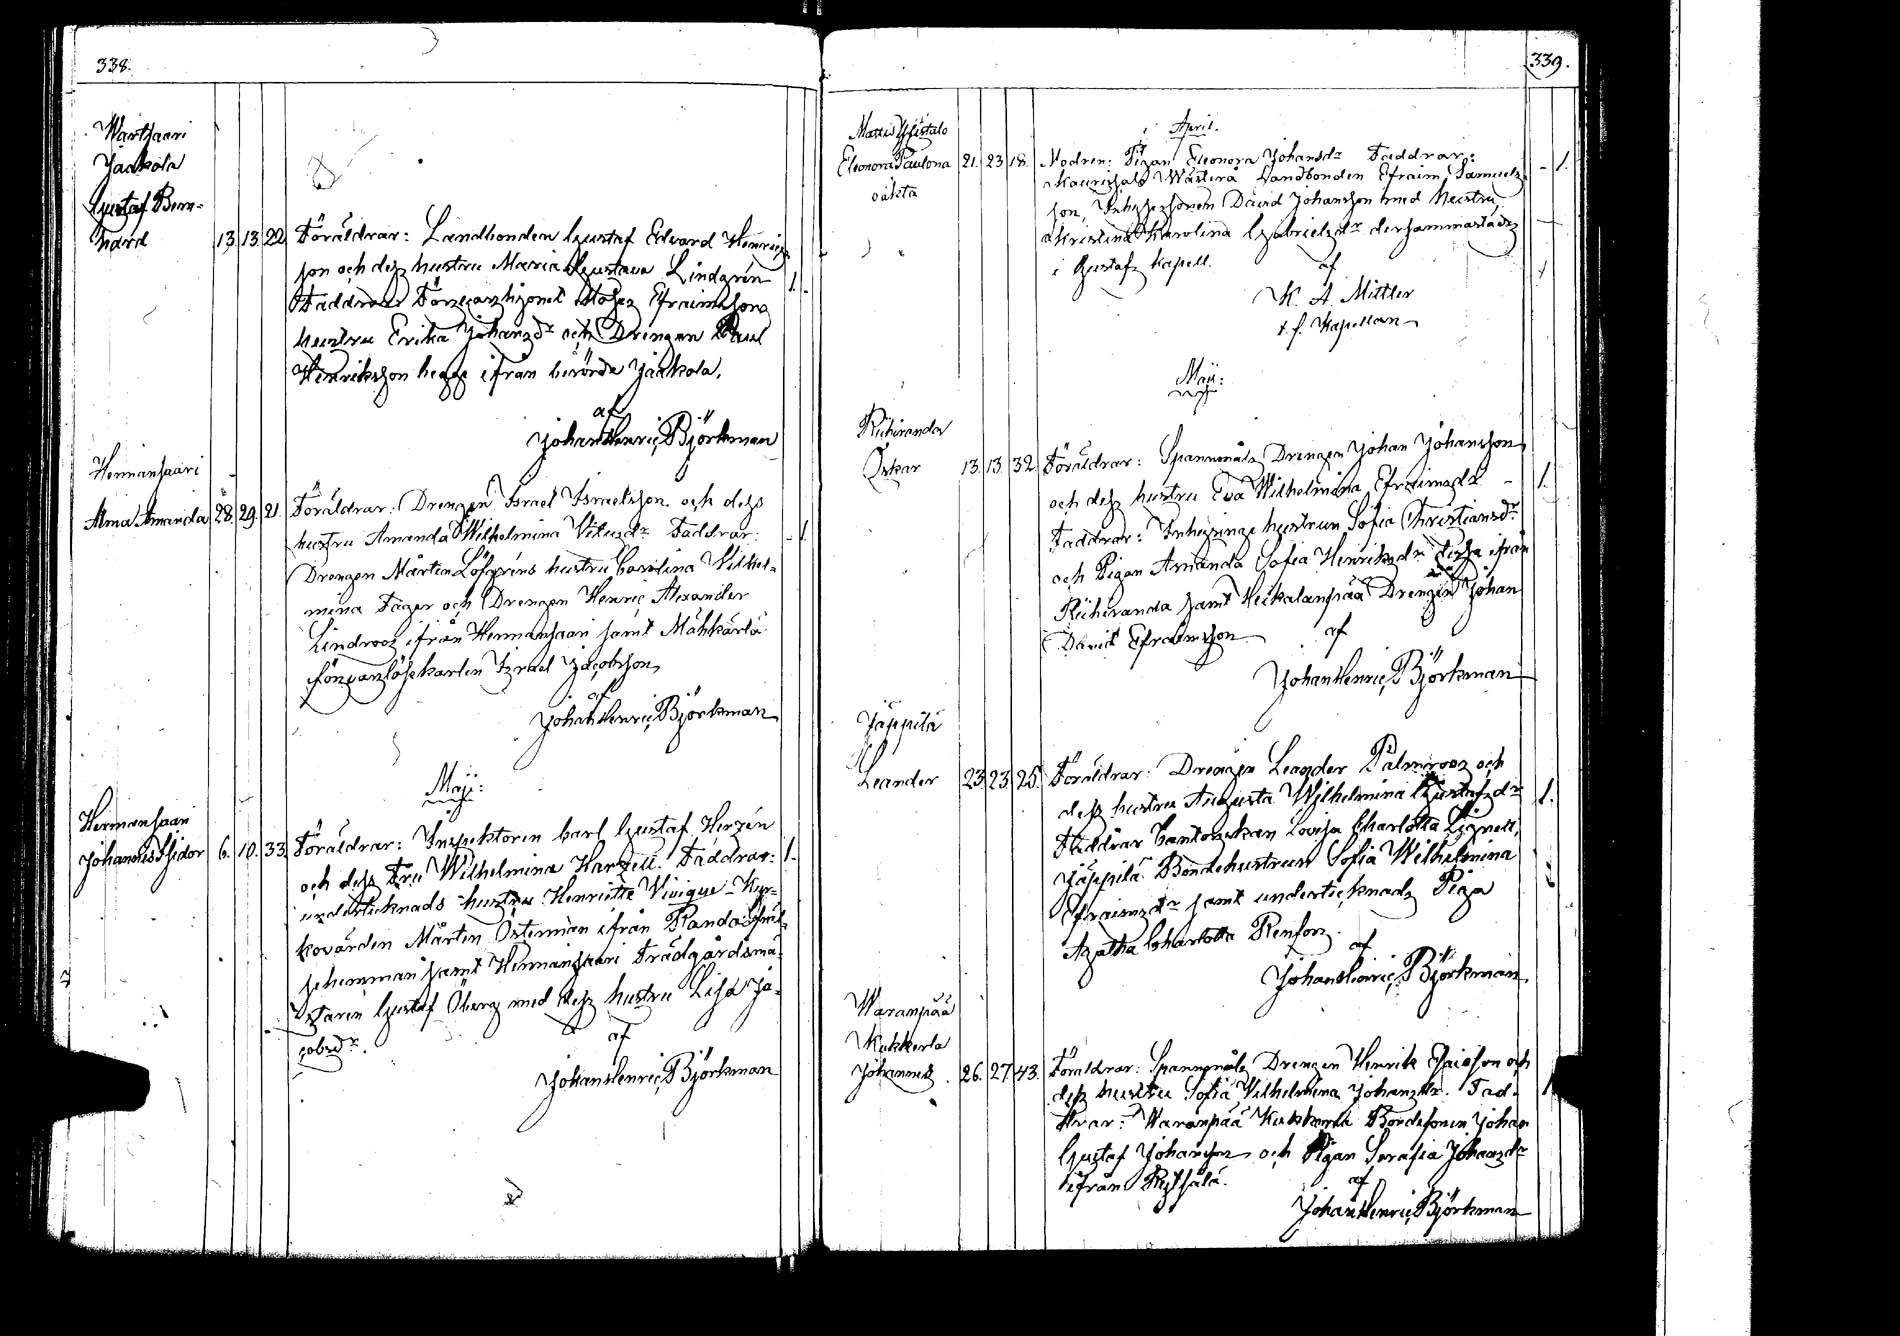 338.
Wartsaari
Jaakola
Gustaf Bern-
hard 13. 13. 22. Föräldrar: Landbonden Gustaf Edvard Henrics
son och dess hustru Maria Gustava Lindgrén 1.
Faddrar: Mosez Efraimsons
hustru Erika Johansdr och Drengen Paul
Henriksson begge ifrån berörde Jaakola.
af
Johan Henric Björkman
Hermansaari
Alma Amanda 28. 29. 21. Föräldrar: Drengen Israel Israelsson och dess
hustru Amanda Wilhelmina Faddrar: 1.
Drengen Mårten Löfgréns hustru Carolina Vilhel-
mina Fager och Drengen Henric Alexander
Lindroos ifrån Hermansaari samt Mähkärlä
Israel Jacobson
af
Johan Henric Björkman
Maji:
Hermansaari
Johannes Isidor 6. 10. 33. Föräldrar: Inspektoren Carl Gustaf Herzén 1.
och dess Fru Wilhelmina Faddrar:
undertecknads hustru Henriette
Mårten Österman ifrån
samt Hermansaari Trädgårdsmä-
staren Gustaf Öberg med dess hustru Lisa Ja-
cobsdr.
af
Johan Henric Björkman
339.
April.
Mattis Ylistalo
Eleonora Paulona 21. 23. 18. Modren: Pigan Eleonora Johansdr Faddrar: 1.
oäkta Landbonden Efraim Samuels
son, David Johansson med hustru
Kristina Karolina Gabrielsdr dersammastädes
i Gustafs Kapell.
af
K. A. Mittler
t. f. Kapellan
Maji:
Riihiranda
Oskar 13. 13. 32. Föräldrar: Spannmåls Drengen Johan Johansson
och dess hustru Eva Wilhelmina Efraimsdr 1.
Faddrar: Inhysinge hustrun Sofia Christiansdr
och Pigan Amanda Sofia Henriksdr dessa ifrån
Riihiranda samt Heikalanpää Drengen Johan
David Efraimsson
af
Johan Henric Björkman
Jäppilä
Leander 23. 23. 25. Föräldrar: Drengen Leander Palmroos och
dess hustru Augusta Wilhelmina Gustafsdr 1.
Faddrar Cantorskan Lovisa Charlotta Lignell,
Jäppilä Bondehustrun Sofia Wilhelmina
Efraimsdr samt undertecknads Piga
Agatha Charlotta Renfors.
af
Johan Henric Björkman
Waranpää
Kukkerla
Johannes 26. 27. 43. Föräldrar: Spannmåls Drengen Henrik Esaisson och
dess hustru Sofia Wilhelmina Johansdr. Fad-
drar: Waranpää Kukkerla Bondesonen Johan
Gustaf Johansson och Pigan Serafia Johansdr
ifrån
af
Johan Henric Björkman